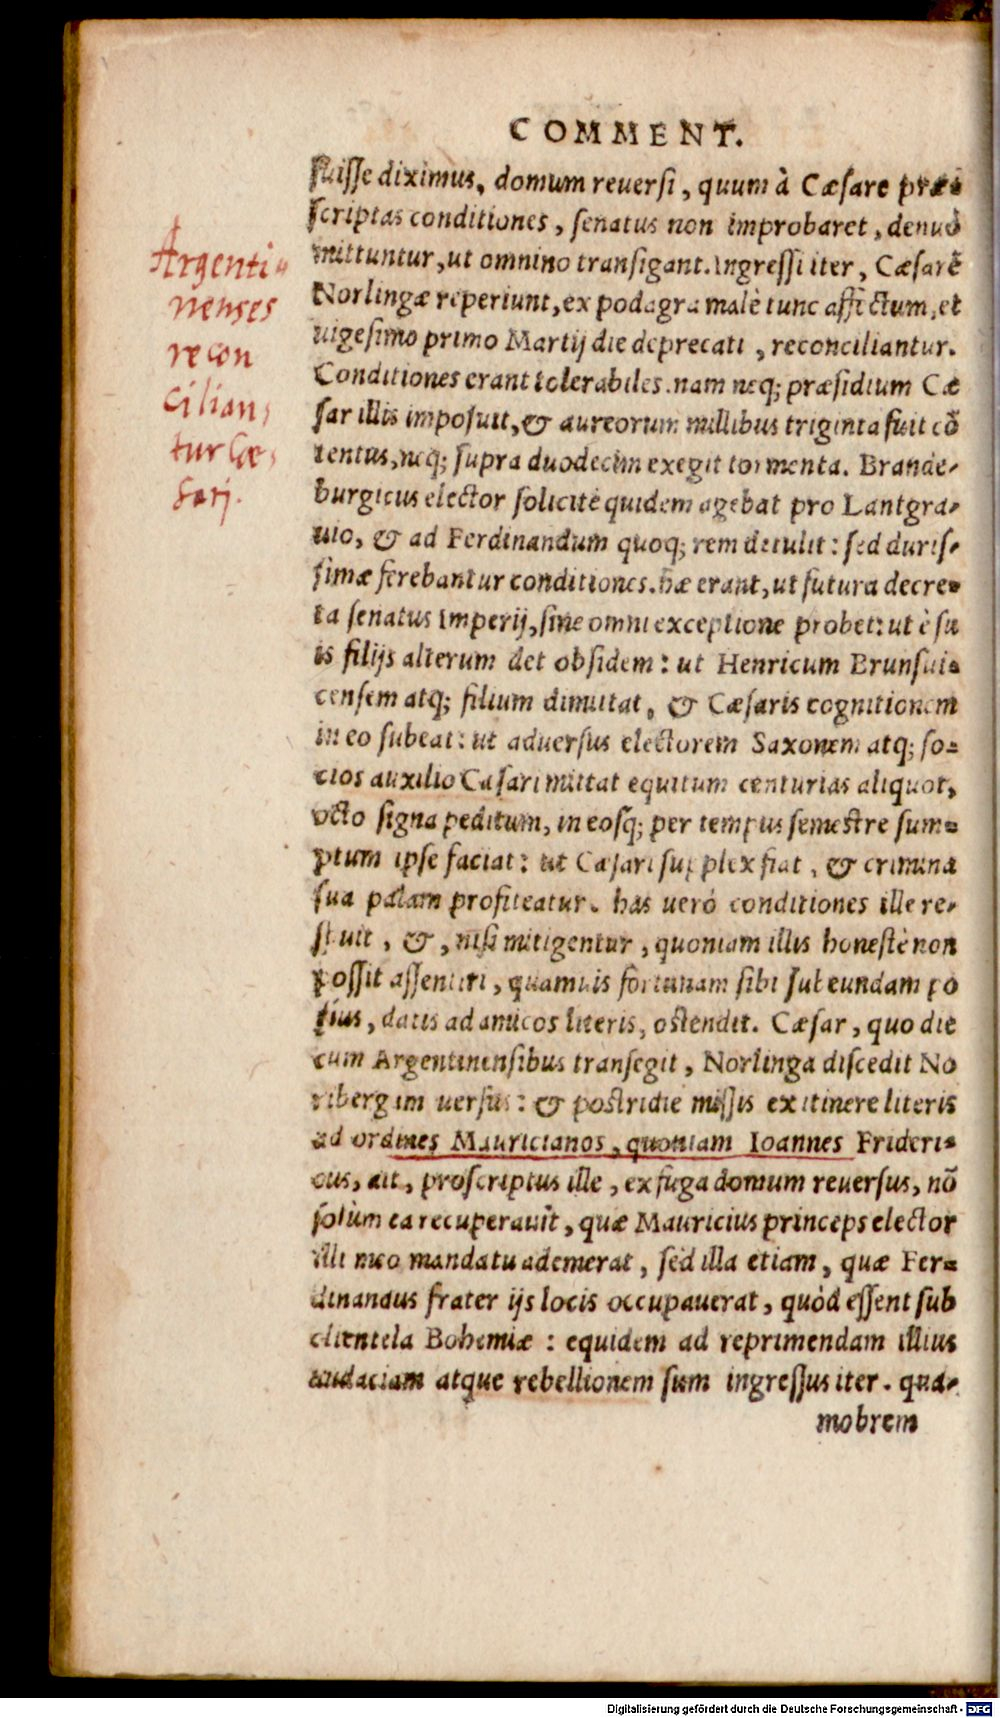 COMMENT.
fuisse diximus, domum reuersi, quum à Cæsare præ-
scriptas conditiones, senatus non improbaret, denuò
mittuntur, ut omnino transigant. Ingressi iter, Cæsarē
Norlingæ reperiunt, ex podagra malè tunc affectum, et
uigesimo primo Martij die deprecati, reconciliantur.
Conditiones erant tolerabiles. nam neq; præsidium Cæ
sar illis imposuit, & aureorum millibus triginta fuit cō
tentus, neq; supra duodecim exegit tormenta. Brande-
burgicus elector solicitè quidem agebat pro Lantgra-
uio, & ad Ferdinandum quoq; rem detulit: sed duris-
simæ ferebantur conditiones. hæ erant, ut futura decre-
ta senatus Imperij, sine omni exceptione probet: ut è su
is filijs alterum det obsidem: ut Henricum Brunsui-
censem atq; filium dimittat, & Cæsaris cognitionem
in eo subeat: ut aduersus electorem Saxonem atq; so-
cios auxilio Cæsari mittat equitum centurias aliquot,
octo signa peditum, in eosq; per tempus semestre sum-
ptum ipse faciat: ut Cæsari supplex fiat, & crimina
sua palam profiteatur. has uerò conditiones ille re-
spuit, &, nisi mitigentur, quoniam illis honestè non
possit assentiri, quamuis fortunam sibi subeundam po
tius, datis ad amicos literis, ostendit. Cæsar, quo die
cum Argentinensibus transegit, Norlinga discedit No
ribergam uersus: & postridie missis ex itinere literis
ad ordines Mauricianos, quoniam Ioannes Frideri-
cus, ait, proscriptus ille, ex fuga domum reuersus, nō
solùm ea recuperauit, quæ Mauricius princeps elector
illi meo mandatu ademerat, sed illa etiam, quæ Fer-
dinandus frater ijs locis occupauerat, quòd essent sub
clientela Bohemiæ: equidem ad reprimendam illius
audaciam atque rebellionem sum ingressus iter. qua-
mobrem
Argenti-
nenses
recon
cilian-
tur Cæ-
sarj.
Digitalisierung gefördert durch die Deutsche Forschungsgemeinschaft - DFG